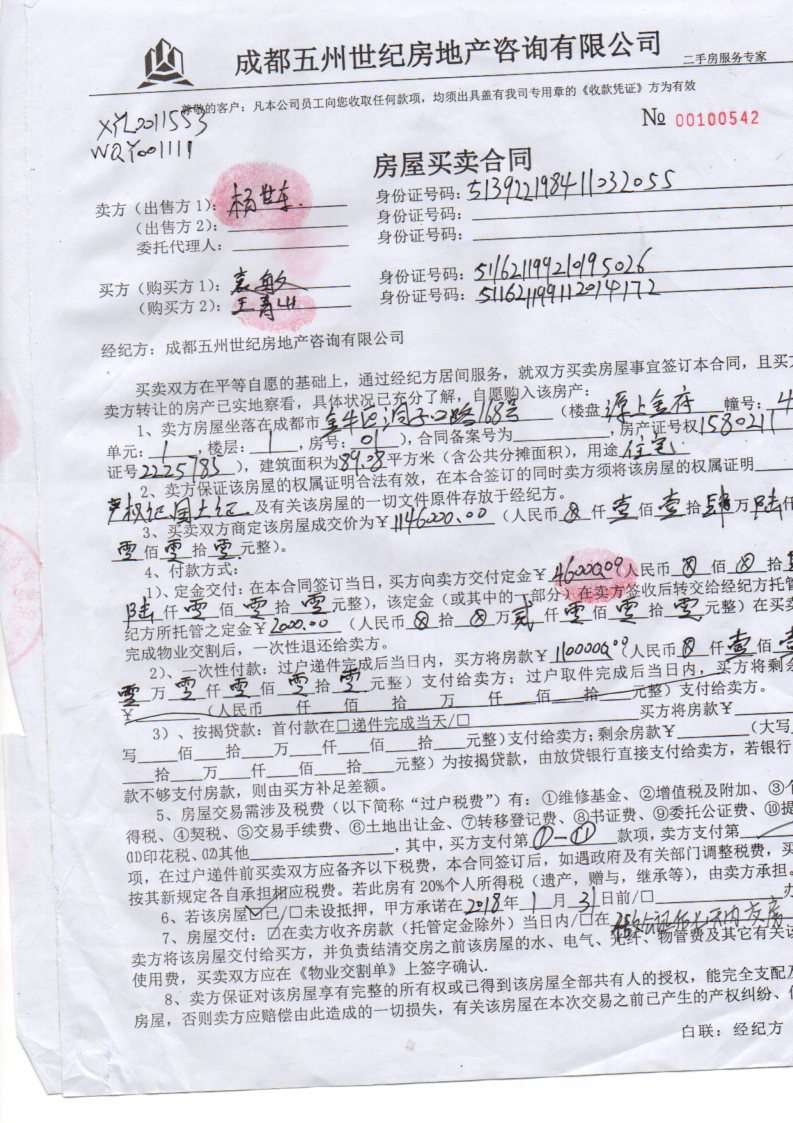 成都五州世纪房地产咨询有限公司 二手房服务专家
尊敬的客户：凡本公司员工向您收取任何款项，均须出具盖有我司专用章的《收款凭证》方为有效
XYL2011553
WQY001111
№ 00100542
房屋买卖合同
卖方（出售方1）：杨世车 身份证号码：513922198411032055
（出售方2）： 身份证号码：
委托代理人： 身份证号码：
买方（购买方1）：袁敏 身份证号码：511621199210195026
（购买方2）：王青山 身份证号码：511621199112014172
经纪方：成都五州世纪房地产咨询有限公司
买卖双方在平等自愿的基础上，通过经纪方居间服务，就双方买卖房屋事宜签订本合同，且买
卖方转让的房产已实地察看，具体状况已充分了解，自愿购入该房产：
1、卖方房屋坐落在成都市金牛区洞子口路168号（楼盘：源上金府 幢号：4
单元：1，楼层：1，房号：01），合同备案号为 ，房产证号权1580211
证号2225785），建筑面积为89.28平方米（含公共分摊面积），用途住宅
2、卖方保证该房屋的权属证明合法有效，在本合签订的同时卖方须将该房屋的权属证明
产权证国土证 及有关该房屋的一切文件原件存放于经纪方。
3、买卖双方商定该房屋成交价为￥1146000.00（人民币⊗仟壹佰壹拾肆万陆仟
零佰零拾零元整）。
4、付款方式：
1）、定金交付：在本合同签订当日，买方向卖方交付定金￥46000.00（人民币⊗佰⊗拾
陆仟零佰零拾零元整），该定金（或其中的一部分）在卖方签收后转交给经纪方托管
纪方所托管之定金￥2000.00（人民币⊗拾⊗万贰仟零佰零拾零元整）在买卖
完成物业交割后，一次性退还给卖方。
2）、一次性付款：过户递件完成后当日内，买方将房款￥1100000.00（人民币⊗仟壹佰壹
零万零仟零佰零拾零元整）支付给卖方；过户取件完成后当日内，买方将剩余
￥ （人民币 仟 佰 拾 万 仟 佰 拾 元整）支付给卖方。
3）、按揭贷款：首付款在□递件完成当天/□ 买方将房款￥
写 佰 拾 万 仟 佰 拾 元整）支付给卖方；剩余房款￥ （大写
拾 万 仟 佰 拾 元整）为按揭贷款，由放贷银行直接支付给卖方，若银行
款不够支付房款，则由买方补足差额。
5、房屋交易需涉及税费（以下简称“过户税费”）有：①维修基金、②增值税及附加、③个
得税、④契税、⑤交易手续费、⑥土地出让金、⑦转移登记费、⑧书证费、⑨委托公证费、⑩提
⑪印花税、⑫其他 ，其中，买方支付第①-⑪款项，卖方支付第
项，在过户递件前买卖双方应备齐以下税费，本合同签订后，如遇政府及有关部门调整税费，买
按其新规定各自承担相应税费。若此房有20%个人所得税（遗产，赠与，继承等），由卖方承担。
6、若该房屋☑已/□未设抵押，甲方承诺在2018年1月31日前/□ 办
7、房屋交付：☑在卖方收齐房款（托管定金除外）当日内/□在
卖方将该房屋交付给买方，并负责结清交房之前该房屋的水、电气、光纤、物管费及其它有关该
使用费，买卖双方应在《物业交割单》上签字确认.
8、卖方保证对该房屋享有完整的所有权或已得到该房屋全部共有人的授权，能完全支配及
房屋，否则卖方应赔偿由此造成的一切损失，有关该房屋在本次交易之前已产生的产权纠纷、
白联：经纪方